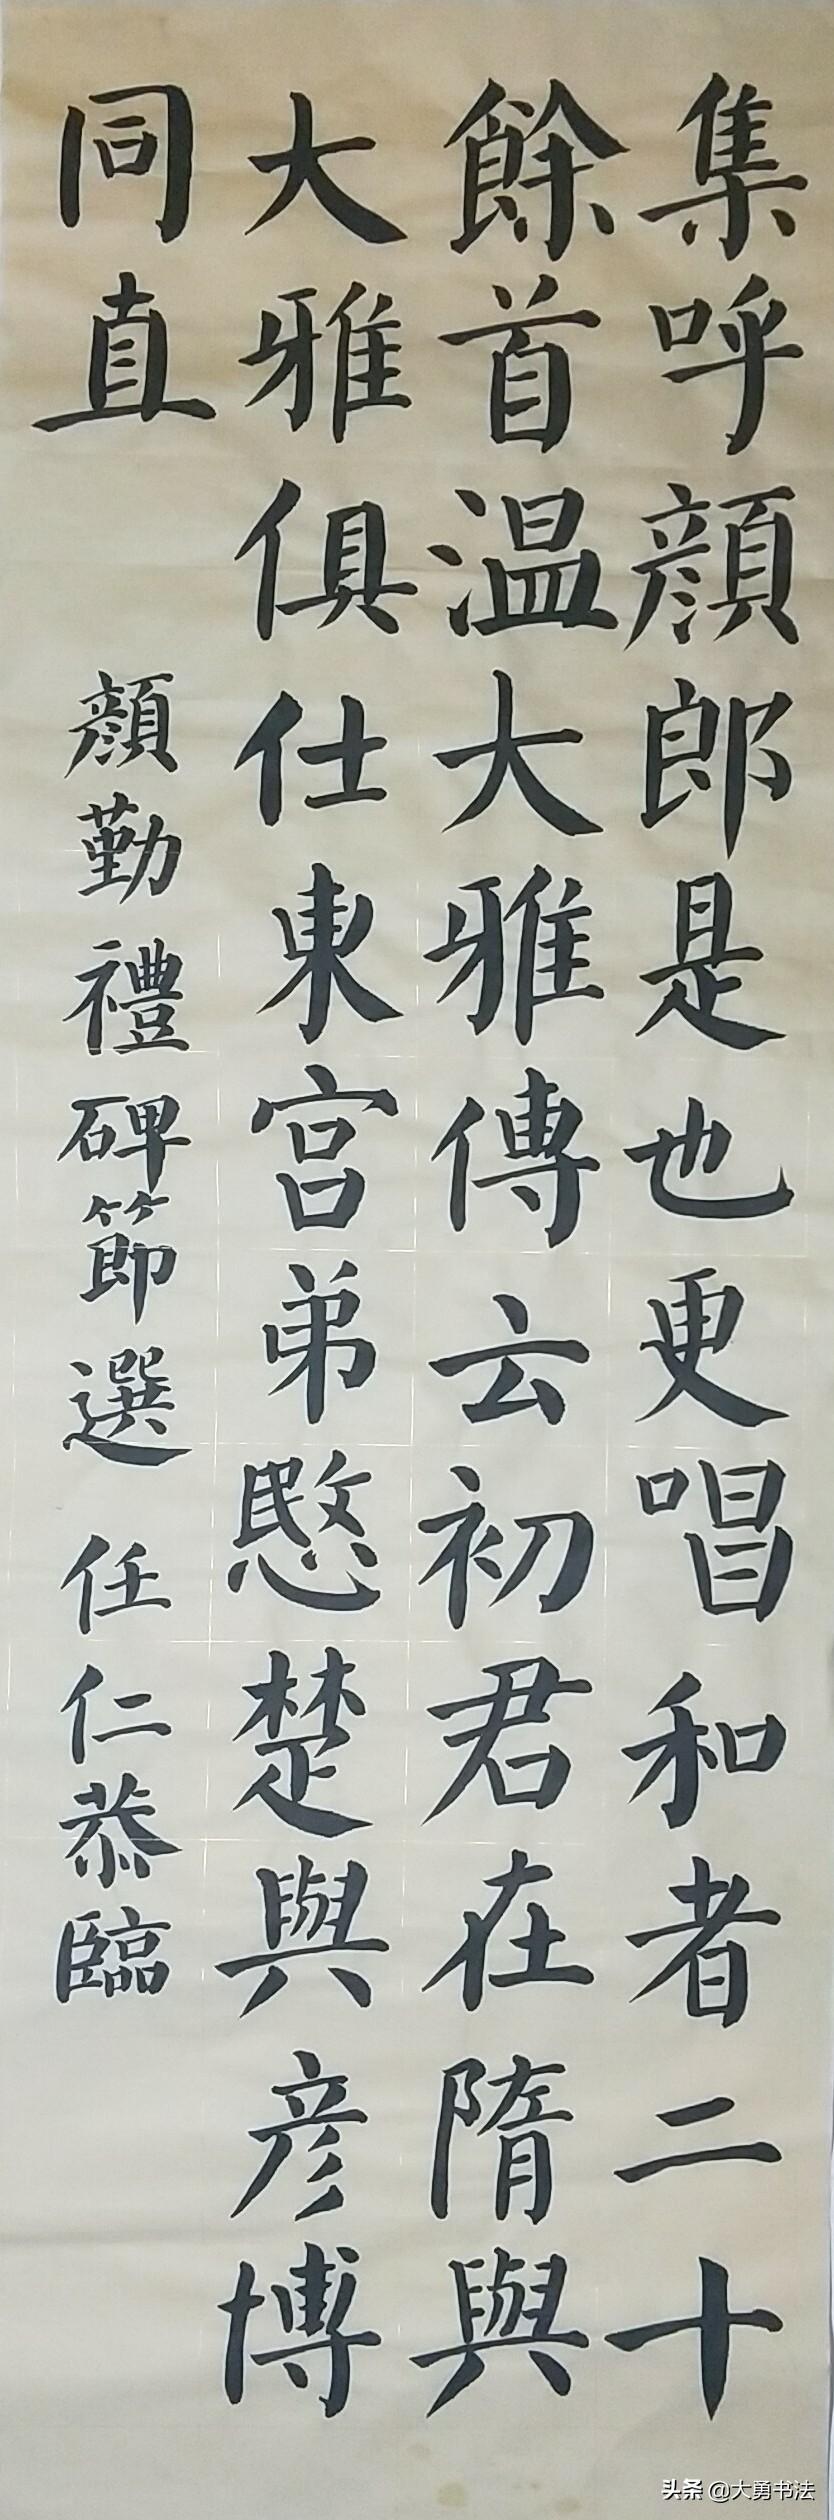 集呼顔郎是也更唱和者二十
餘首温大雅傳云初君在隋與
大雅俱仕東宮弟愍楚與彦博
同直
顔勤禮碑節選 任仁恭臨
头条 @大勇书法